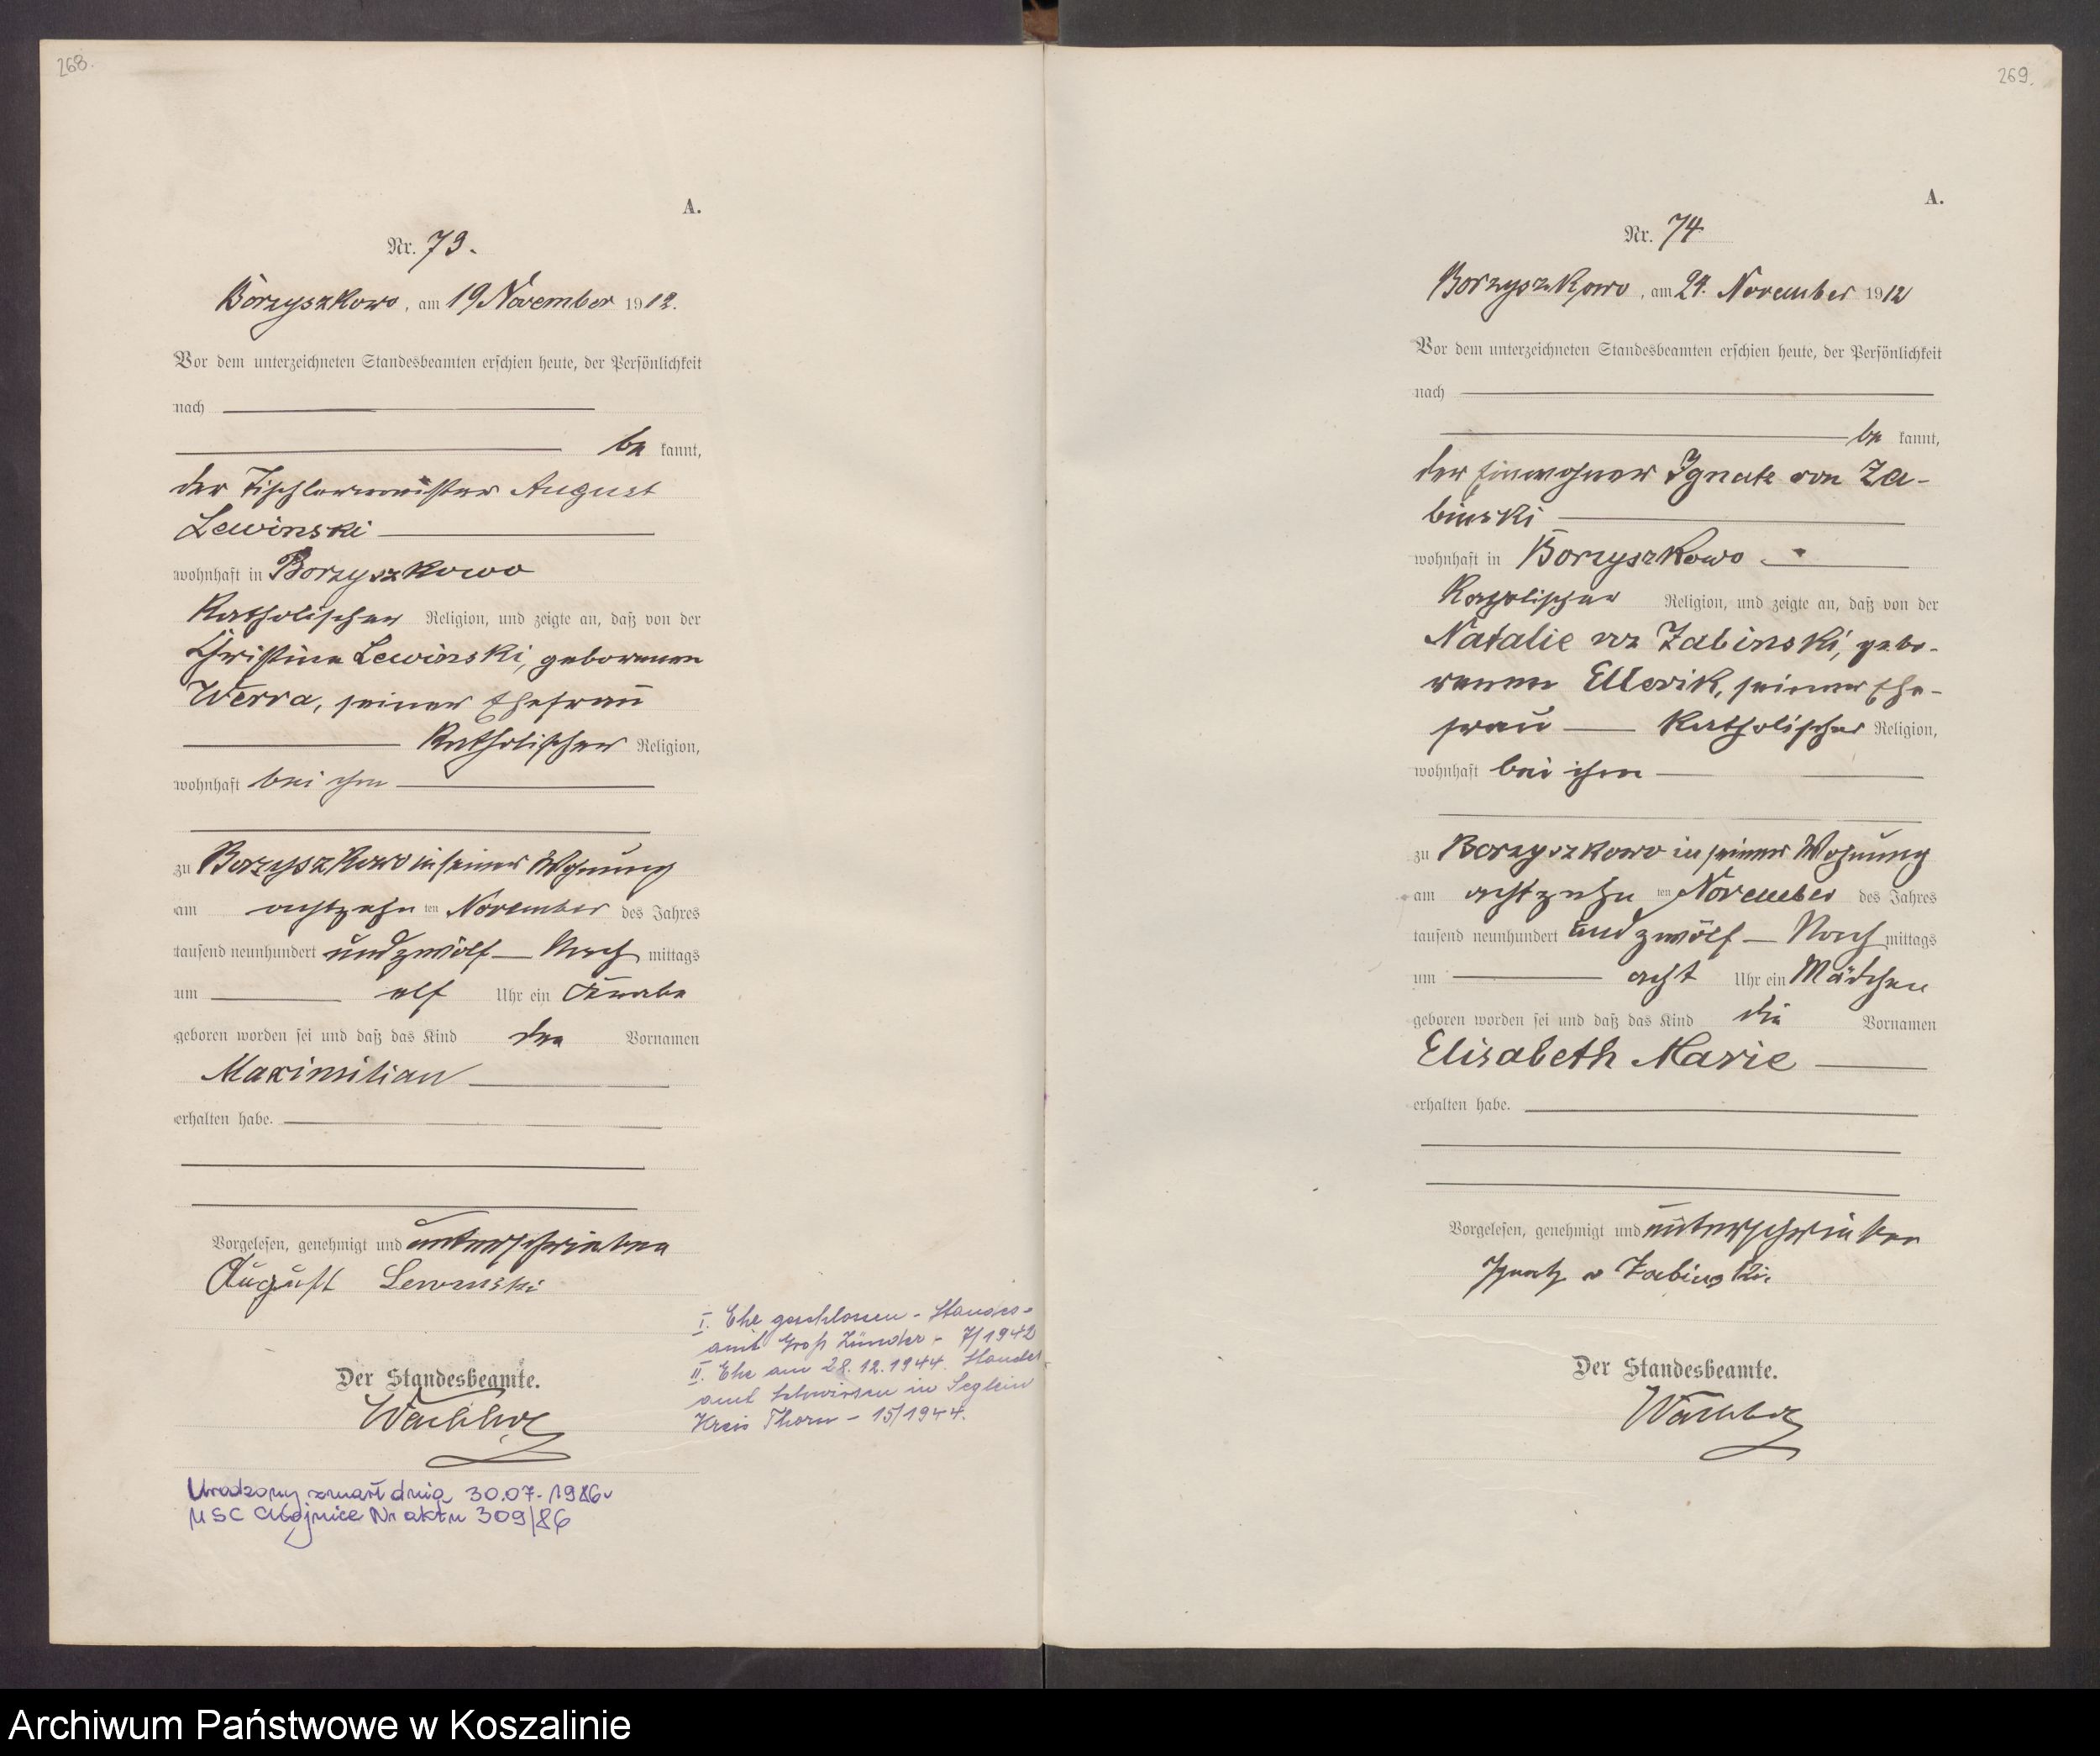 268.
A.
Nr. 73.
Borzyszkowo, am 19 November 1912.
Vor dem unterzeichneten Standesbeamten erschien heute, der Persönlichkeit
nach
be kannt,
der Tischlermeister August
Lewinski
wohnhaft in Borzyszkowo
Katholischer Religion, und zeigte an, daß von der
Christine Lewinski, geborenen
Werra, seiner Ehefrau
Katholischer Religion,
wohnhaft bei ihm
zu Borzyszkowo in seiner Wohnung
am achtzehn ten November des Jahres
tausend neunhundert und zwölf Nach mittags
um elf Uhr ein Knabe
geboren worden sei und daß das Kind den Vornamen
Maximilian
erhalten habe.
Vorgelesen, genehmigt und unterschrieben
August Lewinski
Der Standesbeamte.
I. Ehe geschlossen - Standes-
amt Groß Zünder - 7/1942
II. Ehe am 28.12.1944. Standes
amt in Seglein
Kreis Thorn - 15/1944.
Urodzony zmarł dnia 30.07.1986
USC Chojnice Nr aktu 309/86
269.
A.
Nr. 74
Borzyszkowo, am 24. November 1912
Vor dem unterzeichneten Standesbeamten erschien heute, der Persönlichkeit
nach
be kannt,
der Einwohner Ignatz von Za-
binski
wohnhaft in Borzyszkowo
Katholischer Religion, und zeigte an, daß von der
Natalie von Zabinski, gebo-
renen Ellerik, seiner Ehe-
frau Katholischer Religion,
wohnhaft bei ihm
zu Borzyszkowo in seiner Wohnung
am achtzehn ten November des Jahres
tausend neunhundert und zwölf Nach mittags
um acht Uhr ein Mädchen
geboren worden sei und daß das Kind die Vornamen
Elisabeth Marie
erhalten habe.
Vorgelesen, genehmigt und unterschrieben
Ignatz v Zabinski.
Der Standesbeamte.
Archiwum Państwowe w Koszalinie